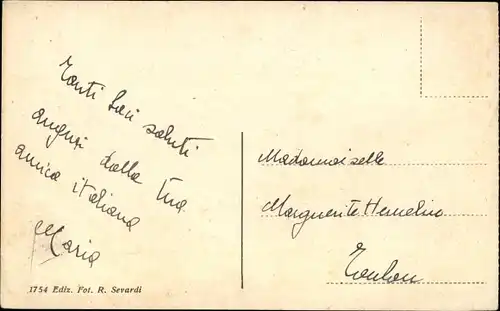 Tanti cari saluti
auguri dalla tua
amica italiana
Maria
Mademoiselle
Marguerite
Toulon
1754 Ediz. Fot. R. Sevardi